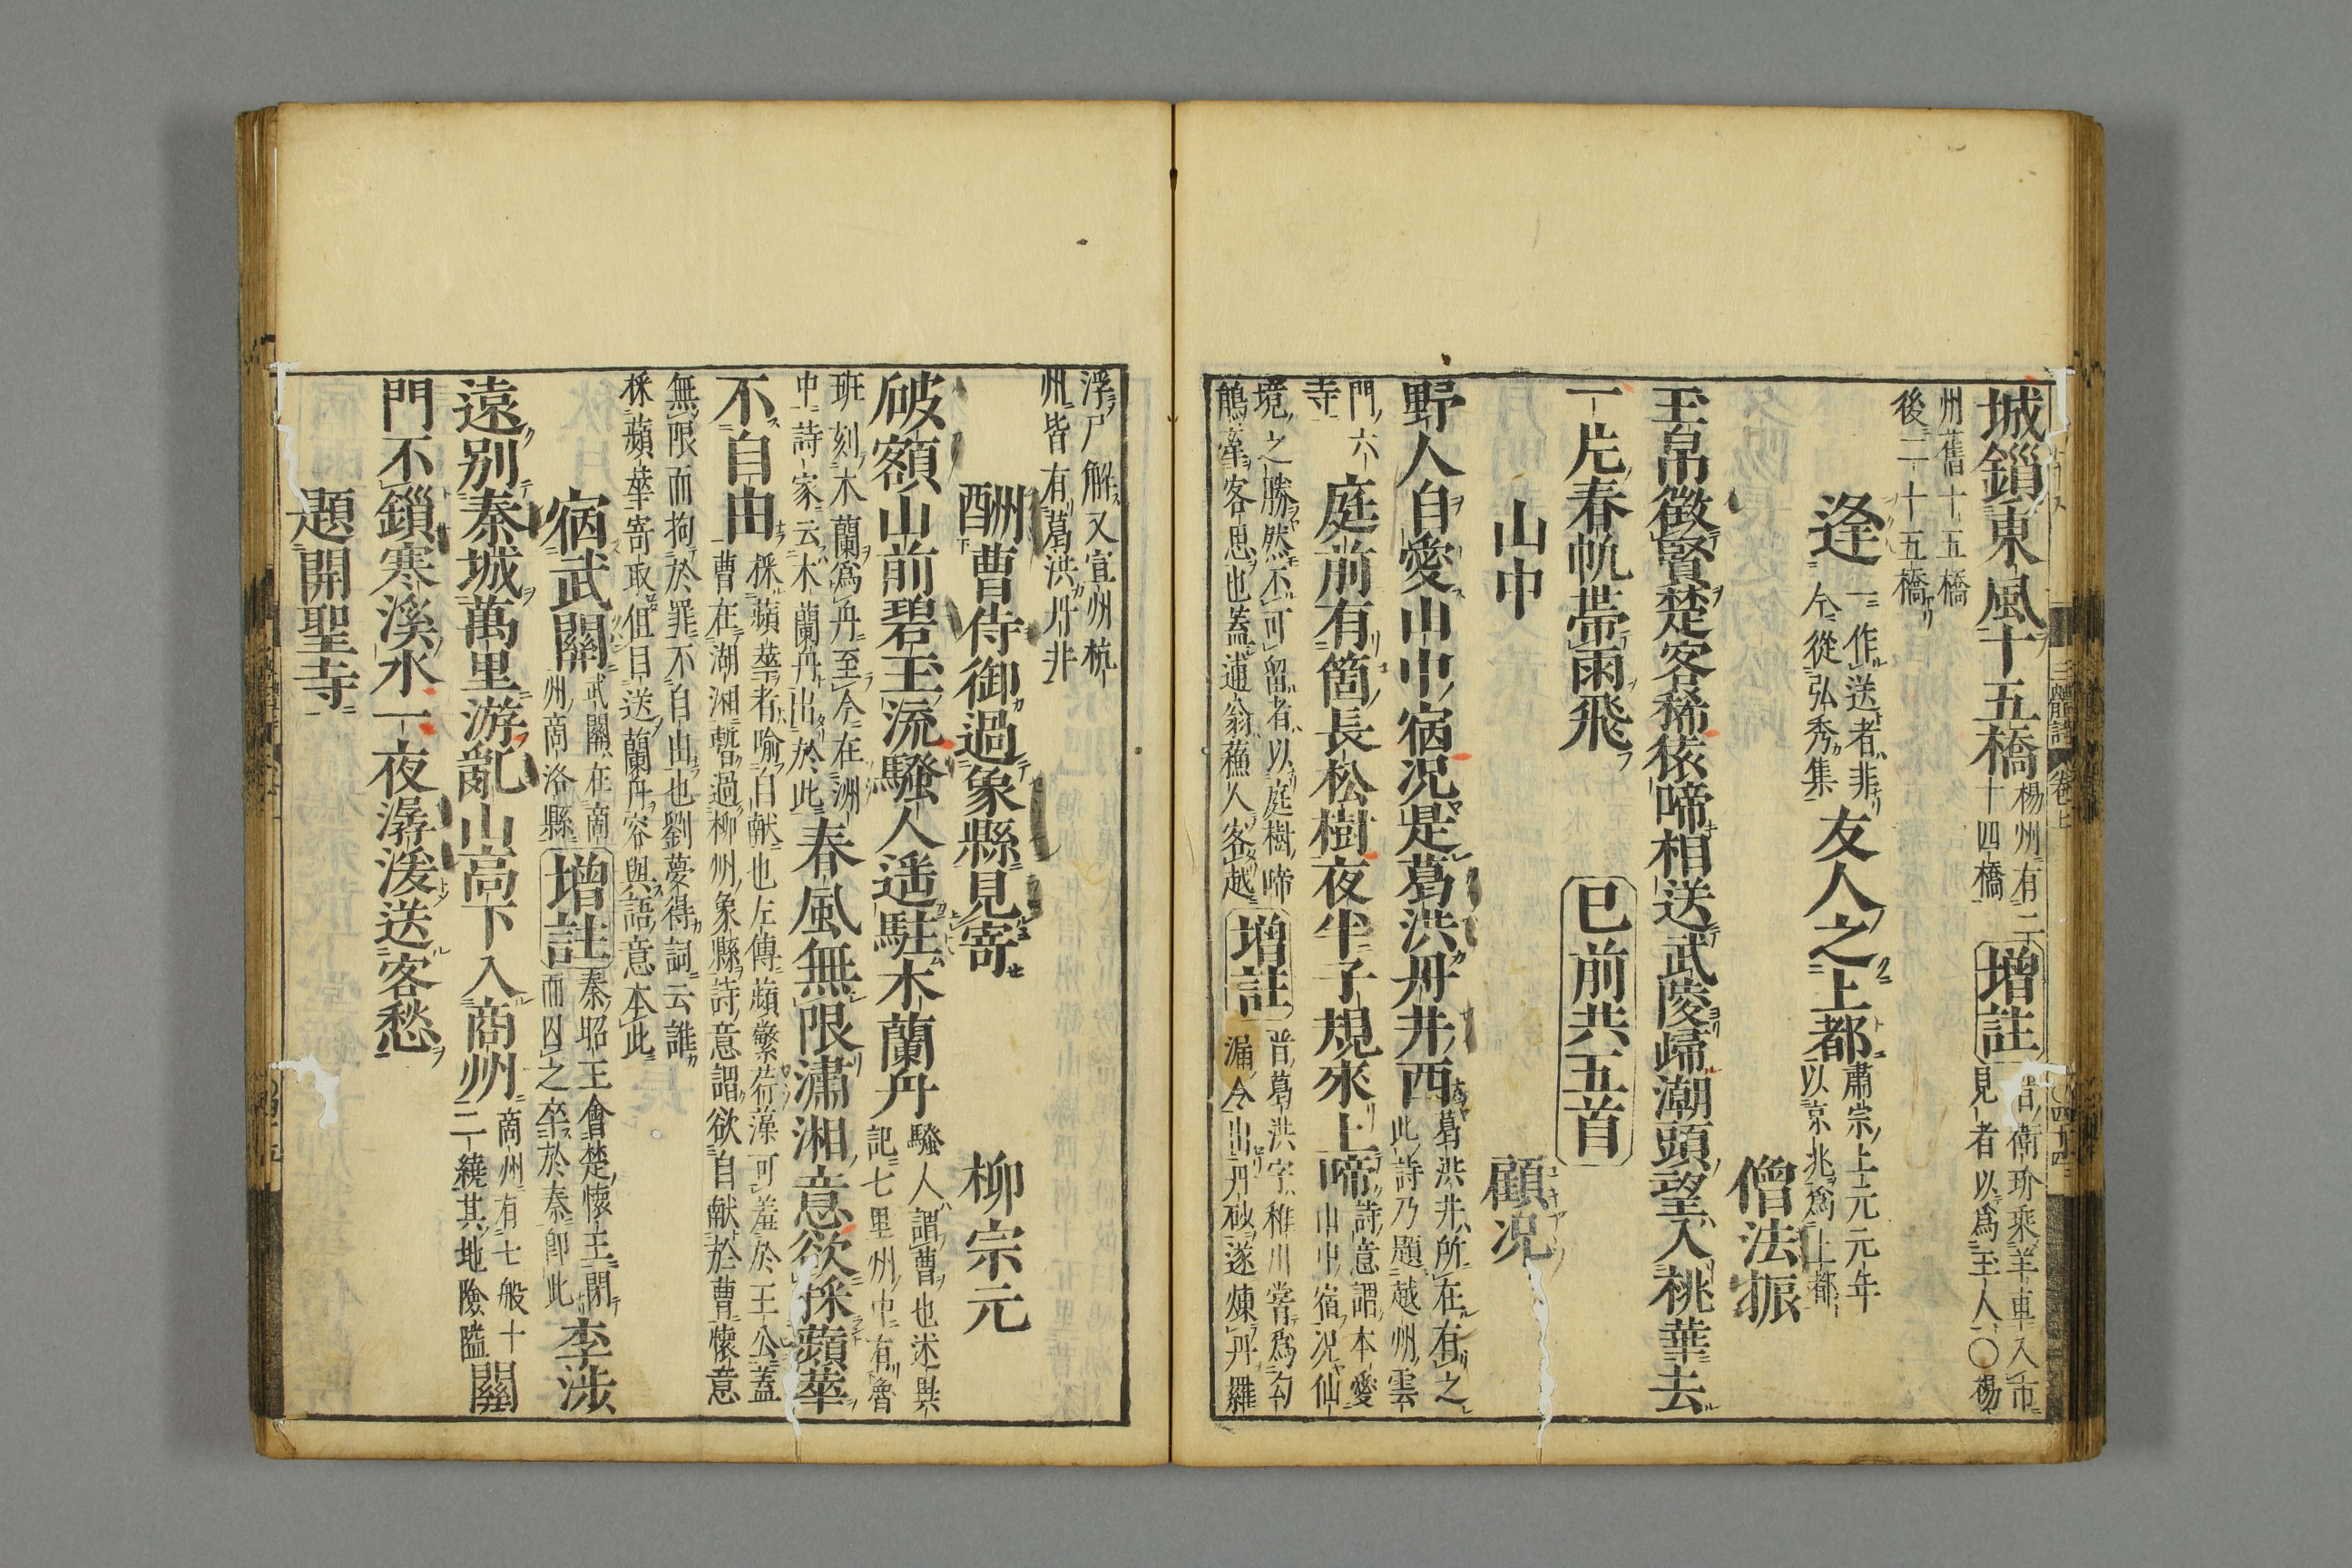 城鎖東風十五橋 楊州有二十四橋 增註 晉衛玠乘羊車入市見者以爲玉人〇楊
州舊十五橋後二十五橋
逢 一作送者非今從弘秀集 友人之上都 肅宗上元元年以京兆爲上都
僧法振
玉帛徵賢楚客稀猿啼相送武陵歸潮頭望入桃華去
一片春帆帶雨飛 已前共五首
山中 顧况
野人自愛山中宿况是葛洪丹井西 葛洪井所在有之此詩乃題越州雲
門六寺 庭前有箇長松樹夜半子規來上啼 詩意謂本愛山中宿况仙
境之勝然不可留者以庭樹啼鵑牽客思也蓋逋翁蘓人客越 增註 晉葛洪字稚川嘗爲勾漏令出丹砂遂煉丹羅
浮尸解又宣州杭州皆有葛洪丹井
酬曹侍御過象縣見寄 柳宗元
破額山前碧玉流騷人遥駐木蘭舟 騷人謂曹也述異記七里州中有魯
班刻木蘭爲舟至今在洲中詩家云木蘭舟出於此 春風無限瀟湘意欲採蘋華
不自由 採蘋華者喻自献也左傳蘋蘩荇藻可羞於王公蓋曹在湖湘暫過柳州象縣詩意謂欲自献於曹懷意
無限而拘於罪不自由也劉夢得詞云誰採蘋華寄取但目送蘭舟容與語意本此
宿武關 武關在商州商洛縣 增註 秦昭王會楚懷王閉而囚之卒於秦卽此 李涉
遠別秦城萬里游亂山高下入商州 商州有七般十二繞其地險隘 關
門不鎖寒溪水一夜潺湲送客愁
題開聖寺
三體詩 卷上 〇四十四